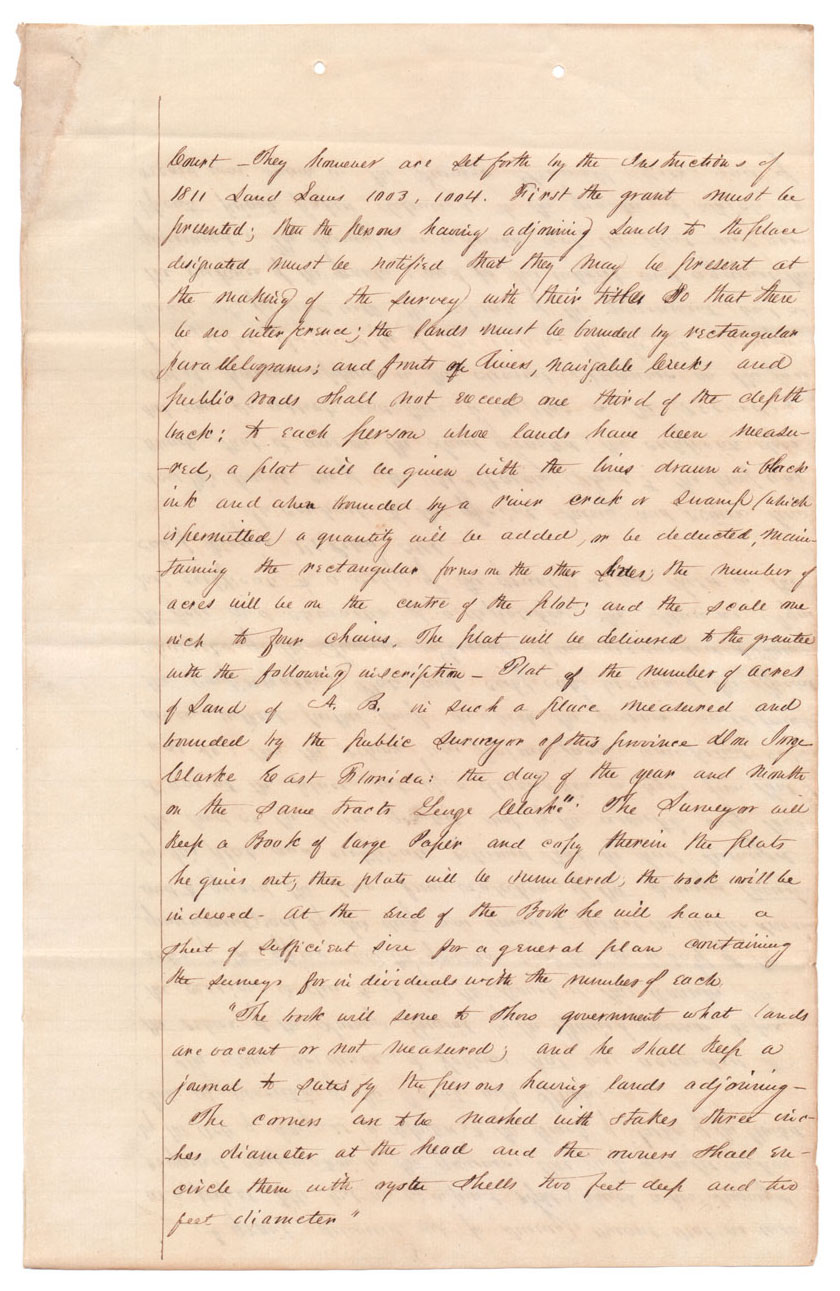 Court – They however are set forth by the Instructions of
1811 Land Laws 1003, 1004. First the grant must be
presented; then the persons having adjoining Lands to the place
designated must be notified that they may be present at
the making of the survey with their titles So that there
be no interference; the lands must be bounded by rectangular
parallelograms; and fronts of Rivers, navigable Creeks and
public roads shall not exceed one third of the depth
back; to each person whose lands have been measu-
-red, a plat will be given with the lines drawn in black
ink and when bounded by a river creek or Swamp (which
is permitted) a quantity will be added, or be deducted, main-
-taining the rectangular forms on the other Sides; the number of
acres will be on the centre of the plot; and the scale one
inch to four chains. The plat will be delivered to the grantee
with the following inscription – Plat of the number of acres
of Land of A. B. in such a place measured and
bounded by the public Surveyor of this province Don Jorge
Clarke East Florida: the day of the year and month
on the same tracts George Clarke". The Surveyor will
keep a Book of large Paper and copy therein the plats
he gives out; these plats will be numbered, the book will be
indexed – At the end of the Book he will have a
sheet of sufficient size for a general plan containing
the surveys for individuals with the number of each
"The book will serve to show government what lands
are vacant or not measured; and he shall keep a
journal to satisfy the persons having lands adjoining –
The corners are to be marked with stakes three inc-
-hes diameter at the head and the owners shall en-
circle them with oyster shells two feet deep and two
feet diameter"